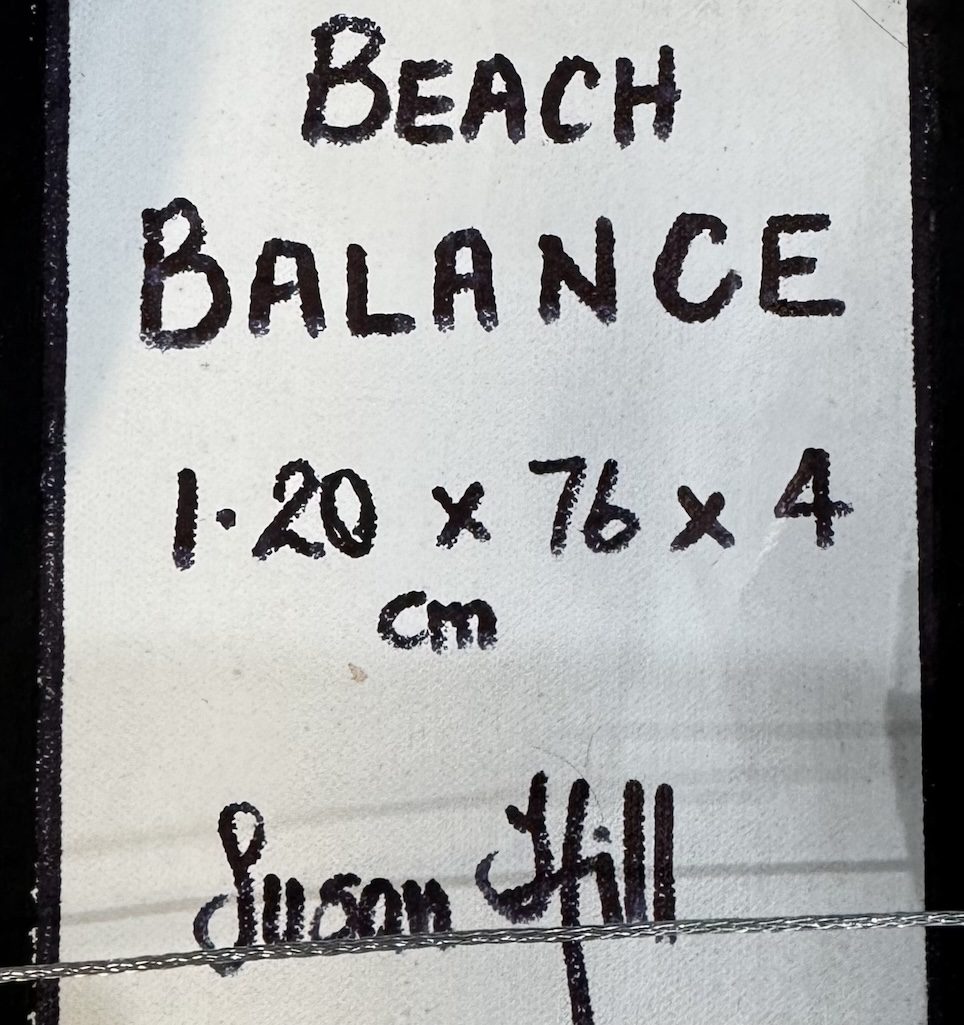 BEACH
BALANCE
1·20 x 76 x 4
cm
Susan Hill